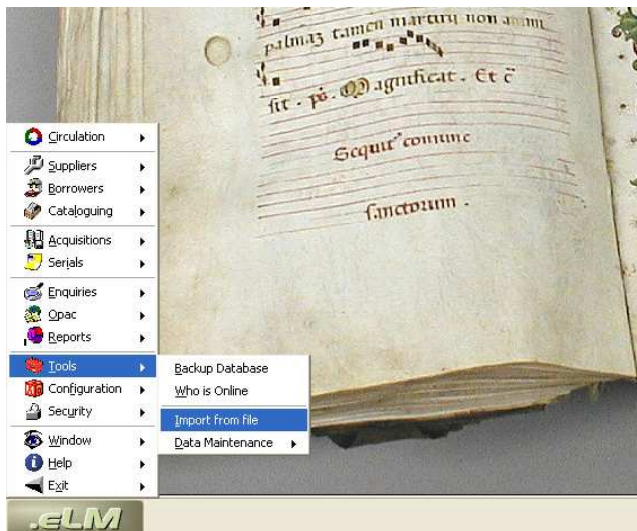 palmaz tamen martirii non amini
sit . ps. Magnificat. Et c̄
Sequit' comune
sanctorum .
Circulation
Suppliers
Borrowers
Cataloguing
Acquisitions
Serials
Enquiries
Opac
Reports
Tools
Configuration
Security
Window
Help
Exit
Backup Database
Who is Online
Import from file
Data Maintenance
.eLM